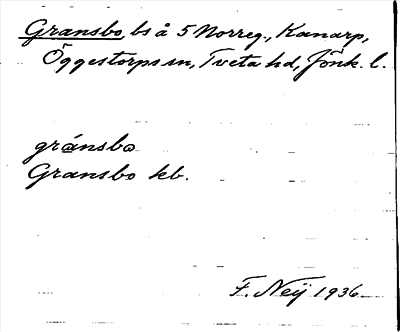 Gransbo, bs å 5 Norreg., Kanarp,
Öggestorps sn, Tveta hd, Jönk. l.
gránsbo
Gransbo kb.
F. Neij 1936